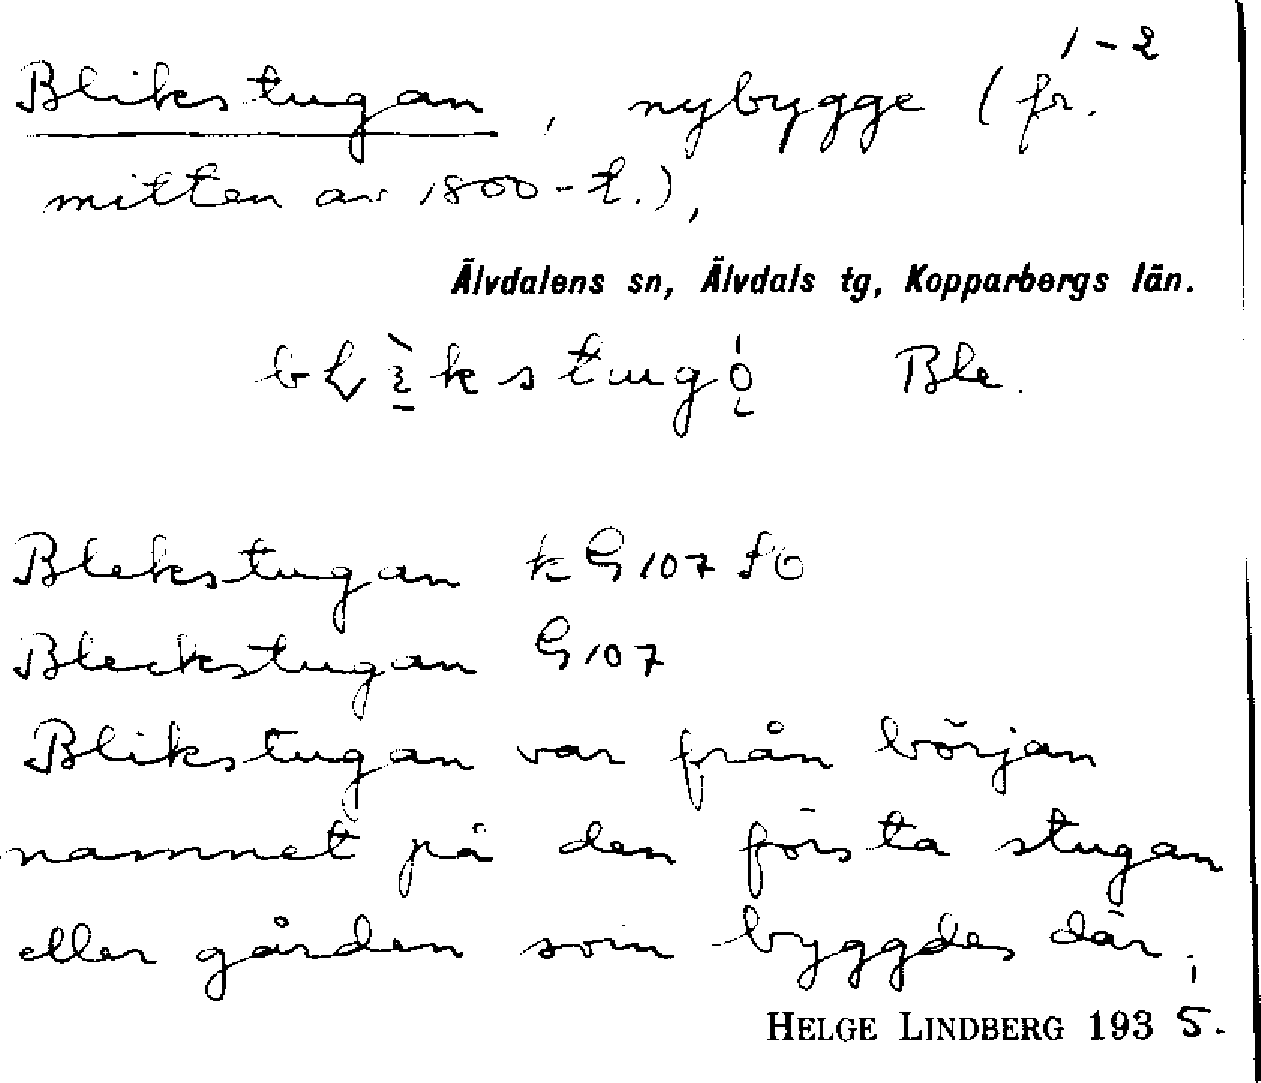 1-2
Blikstugan, nybygge (fr.
mitten av 1800-t.),
Älvdalens sn, Älvdals tg, Kopparbergs län.
Ble.
Blekstugan k G107 fo
Bleckstugan G107
Blikstugan var från början
namnet på den första stugan
eller gården som byggdes där;
HELGE LINDBERG 1935.